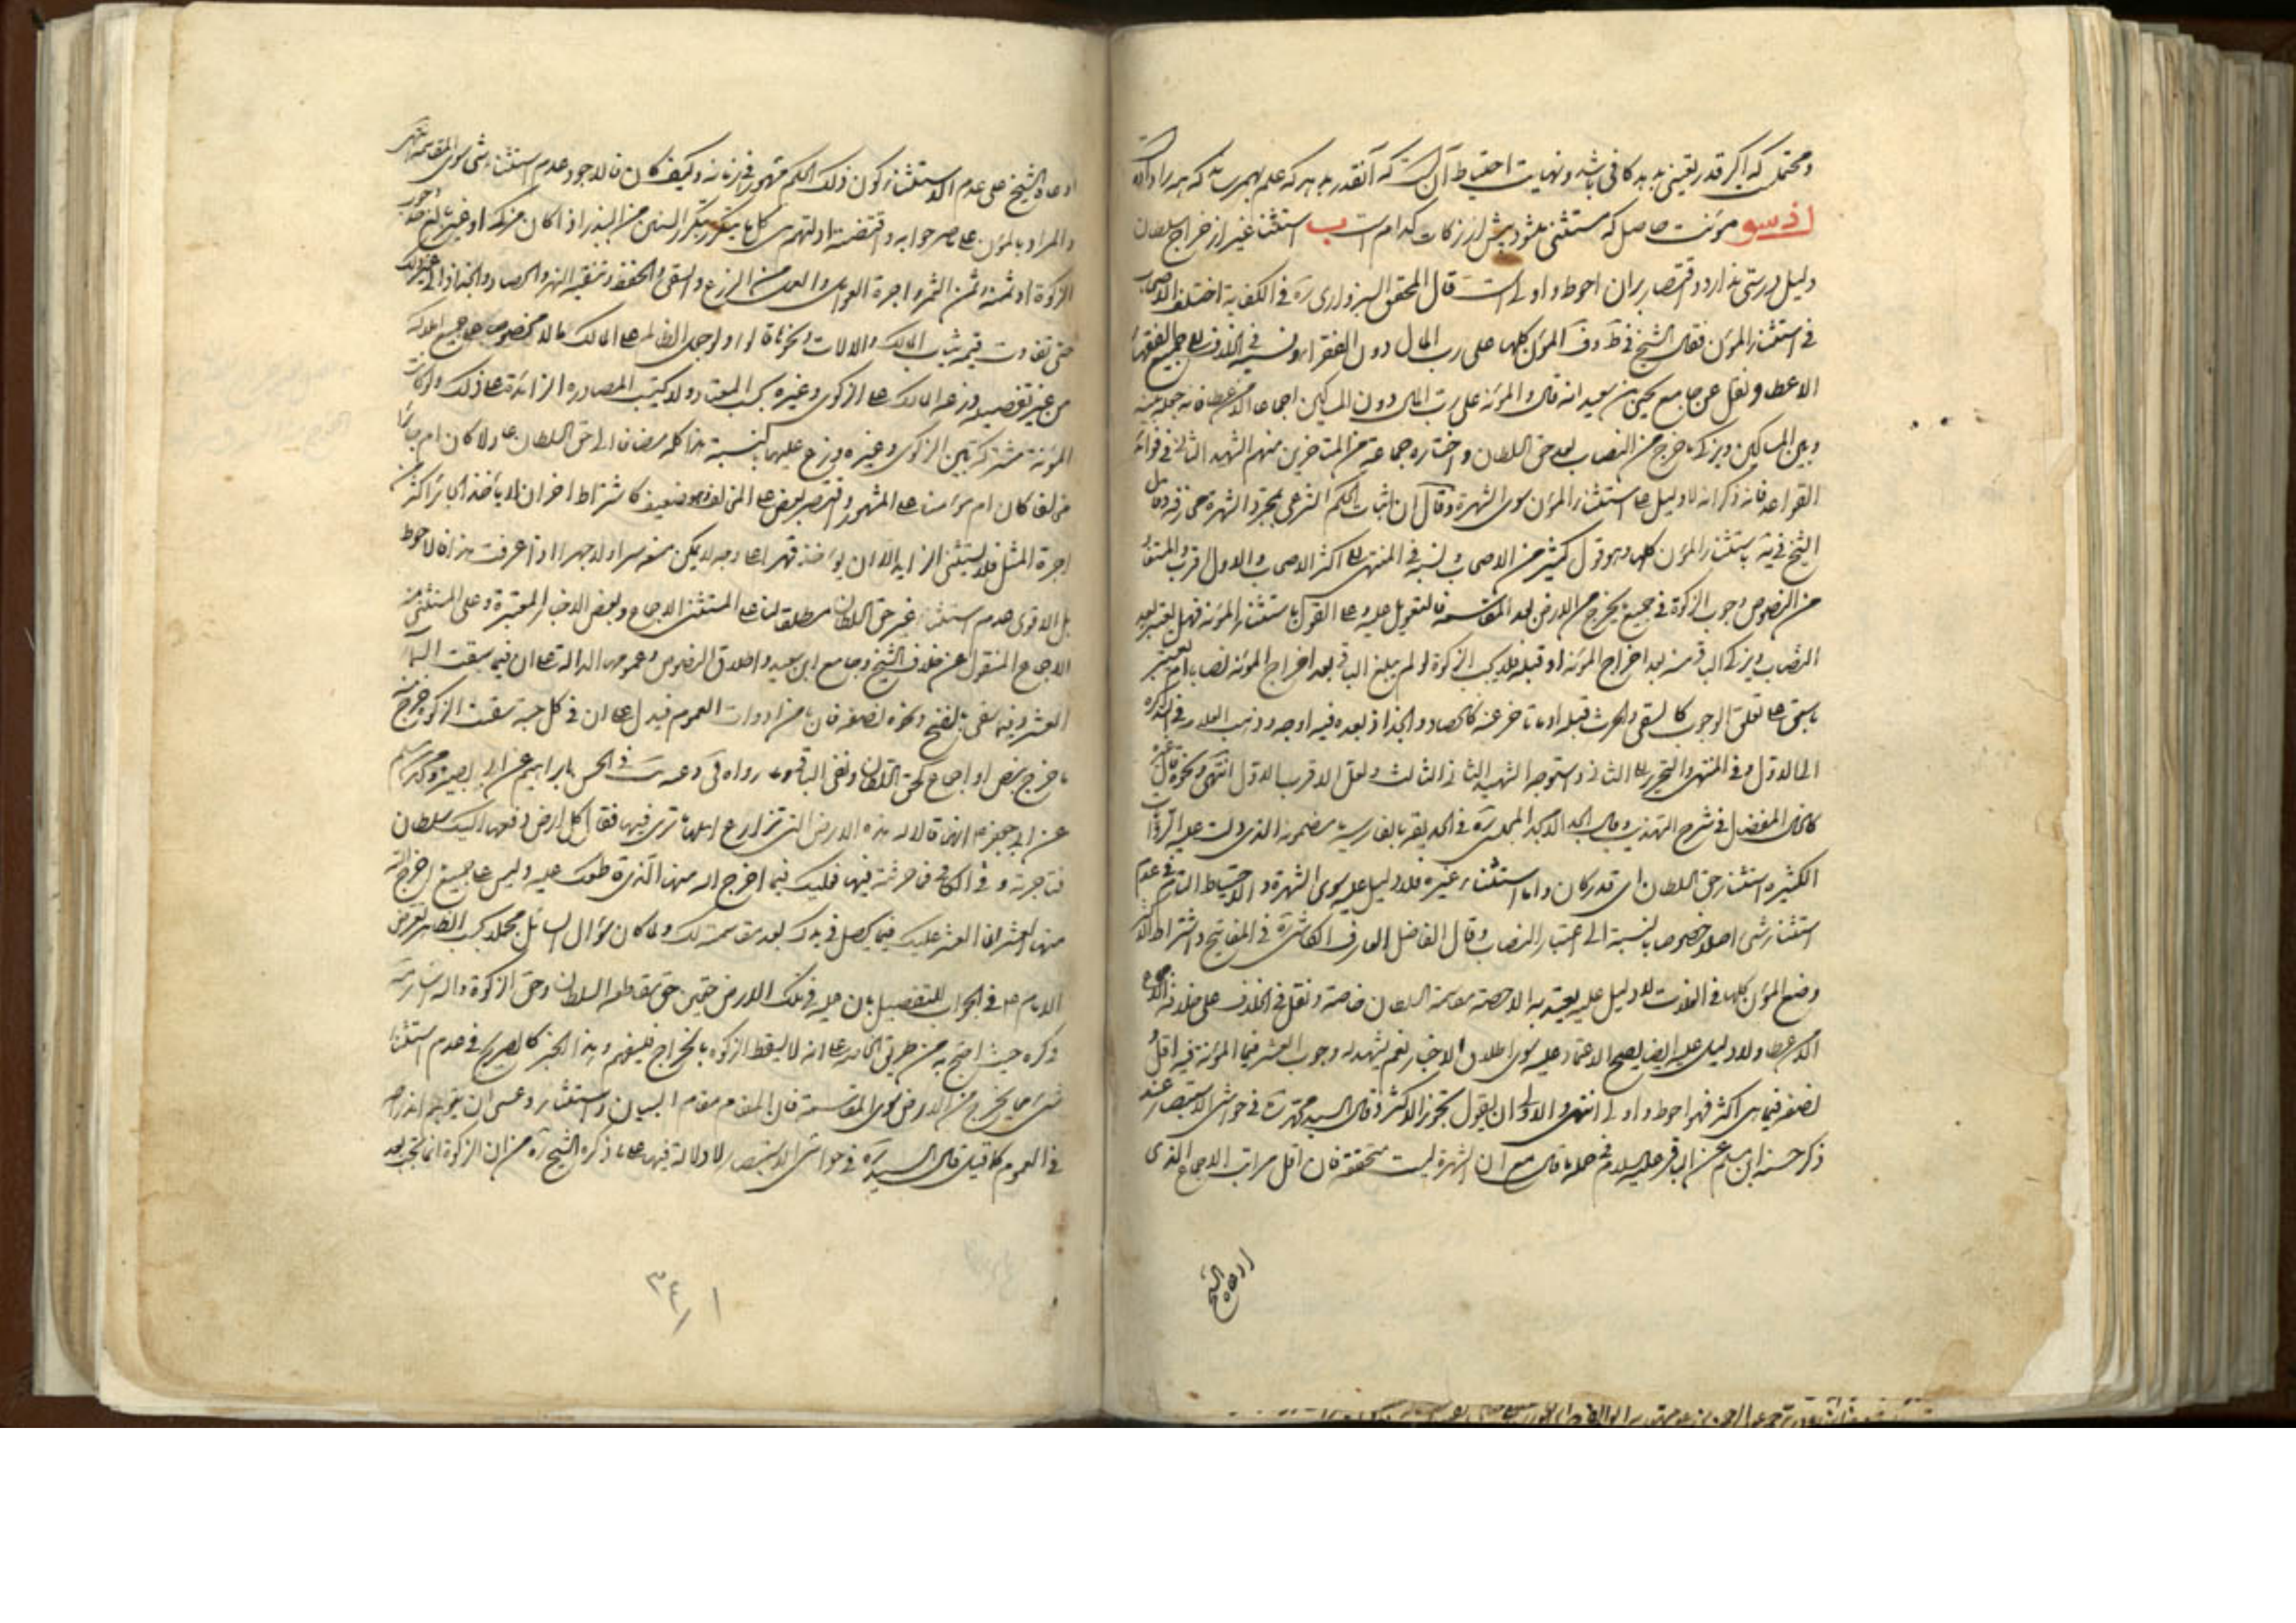 ومحتملست که اگر قدر یقینی بدهد کافی باشد ونهایت احتیاط آن است که آنقدر بدهد که علم بهم رساند که همه را داده
اذسو مؤنت حاصل که مستثنی میشود پیش از زکات کدام است ب استثناء غیر از خراج سلطان
دلیل درستی ندارد واقتصار بران احوط واولی است قال المحقق السبزواری ره فی الکفایة اختلف الاصحاب
فی استثناء المؤن فقال الشیخ فی ط وف المؤن کلها علی رب المال دون الفقراء ونسبه فی الخلاف الی جمیع الفقهاء
الا عطا ونقل عن جامع یحیی بن سعید انه قال والمؤنة علی رب المال دون المساکین اجماعا الا عطا فانه جعلها بینه
وبین المساکین ویزکی ما خرج من النصاب بعد حق السلطان واختاره جماعة من المتاخرین منهم الشهید الثانی فی فوائد
القواعد فانه ذکر انه لا دلیل علی استثناء المؤن سوی الشهرة وقال ان اثبات الحکم الشرعی بمجرد الشهرة مجازفة وقال
الشیخ فی یة باستثناء المؤن کلها وهو قول کثیر من الاصحاب ونسبه فی المنتهی الی اکثر الاصحاب والاول اقرب والمستفاد
من النصوص وجوب الزکوة فی جمیع ما یخرج من الارض بعد المقاسمة فالتعویل علیه وعلی القول باستثناء المؤنة فهل یعتبر بعد
النصاب ویزکی الباقی منه بعد اخراج المؤنة او قبله فلا یجب الزکوة لو لم یبلغ الباقی بعد اخراج المؤنة نصابا ام یعتبر
ما سبق علی تعلق الوجوب کالسقی والحرث قبله وما تاخر عنه کالحصاد والجذاذ بعده فیه اوجه وذهب العلامة فی التذکرة
الی الاول وفی المنتهی والتحریر الی الثانی واستوجه الشهید الثانی الثالث ولعل الاقرب الاول انتهی ونحوه قال غیره
کالخال المفضال فی شرح التهذیب وقال الجد الامجد المجلسی ره فی الحدیقة بالفارسیة ما مضمونه الذی دلت علیه الروایات
الکثیرة استثناء حق السلطان ای قدر کان واما استثناء غیره فلا دلیل علیه سوی الشهرة والاحتیاط التام فی عدم
استثناء شی اصلا خصوصا بالنسبة الی اعتبار النصاب وقال الفاضل العارف الکاشی ره فی المفاتیح واشتراط الاکثر
وضع المؤن کلها فی الغلات لا دلیل علیه یعتد به الا حصة مقاسمة السلطان خاصة ونقل فی الخلاف علی خلافه الاجماع
الا من عطا ولا دلیل علیه ایضا یصح الاعتماد علیه سوی اطلاق الاخبار نعم یشهد له وجوب العشر فیما المؤنة فیه اقل و
نصفه فیما هی اکثر فهو احوط واولی انتهی والاولی ان یقول بتجوز الاکثر وقال السید محمد ره فی حواشی الاستبصار عند
ذکر حسنة ابن مسلم عن الباقر علیه السلام فی جملة ما قال مع ان الشهرة لیست متحققة فان اقل مراتب الاجماع الذی
ادعاه الشیخ
ادعاه الشیخ علی عدم الاستثناء کون ذلک الحکم مشهورا فی زمانه وکیف کان فالاجود عدم استثناء شی سوی المقاسمة انتهی
والمراد بالمؤن علی ما صرحوا به واقتضته ادلتهم هی کل ما یتکرر بتکرر السنین من البذر اذا کان مزکی او غیر بالغ حد وجوب
الزکوة او ثمنه وثمن الثمر واجرة العوامل والعمل من الزرع والسقی والحفظ وتنقیة النهر والحصاد والجذاذ الی غیر ذلک
حتی تفاوت قیمة ثیاب المالک والآلات ونحوها
من غیر تفصیر وزعه المالک علی الزکوی وغیره بحسب المعتاد ولا یحتسب المصادرة الزائدة علی ذلک ولو کانت
المؤنة مشترکة بین الزکوی وغیره وزع علیهما بالنسبة هذا کله مضافا الی حق السلطان عادلا کان ام جائرا
مخالفا کان ام مؤمنا علی المشهور واقتصر بعض علی المخالف وهو ضعیف کاشتراط اخر ان لا یأخذ الجائر اکثر من
اجرة المثل فلا یستثنی الزاید الا ان یؤخذ قهرا علی وجه لا یمکن منعه سرا ولا جهرا اذا عرفت هذا فالاحوط
بل الاقوی عدم استثناء غیر حق السلطان مطلقا لنا علی المستثنی الاجماع وبعض الاخبار المعتبرة وعلی المستثنی منه
الاجماع المنقول عن خلاف الشیخ وجامع ابن سعید واطلاق النصوص وعمومها الدالة علی ان فیما سقت السماء
العشر وفیما سقی بالنضح ونحوه نصفه فان ما من ادوات العموم فیدل علی ان فی کل حبة سقت الزکوة خرج منه
ما خرج بنص او اجماع کحق السلطان وبقی الباقی وما رواه فی الحسن بابراهیم عن ابی بصیر ومحمد بن مسلم
عن ابی جعفر ع انهما قالا له هذه الارض التی تزارع اهلها ما تری فیها فقال کل ارض دفعها الیک سلطان
فتاجرته وفی الکافی فما حرثته فیها فعلیک فیما اخرج الله منها الذی قاطعک علیه ولیس علی جمیع ما اخرج الله
منها العشر انما العشر علیک فیما یحصل فی یدک بعد مقاسمته لک ولما کان سؤال السائل مجملا بحسب الظاهر تعرض
الامام ع فی الجواب للتفصیل بان علیه فی تلک الارض حقین حق مقاطعة السلطان وحق الزکوة
ذکره حیث احتج به من طریق الخاصة علی انه لا یسقط الزکوة بالخراج فلیفهم وهذا الخبر کالصریح فی عدم استثناء
شی مما یخرج من الارض سوی المقاسمة فان المقام مقام البیان والاستثناء وعسی ان
فی العموم کما قیل قال السید ره فی حواشی الاستبصار لا دلالة فیها علی ما ذکره الشیخ ره من ان الزکوة انما یجب بعد
١٣٤